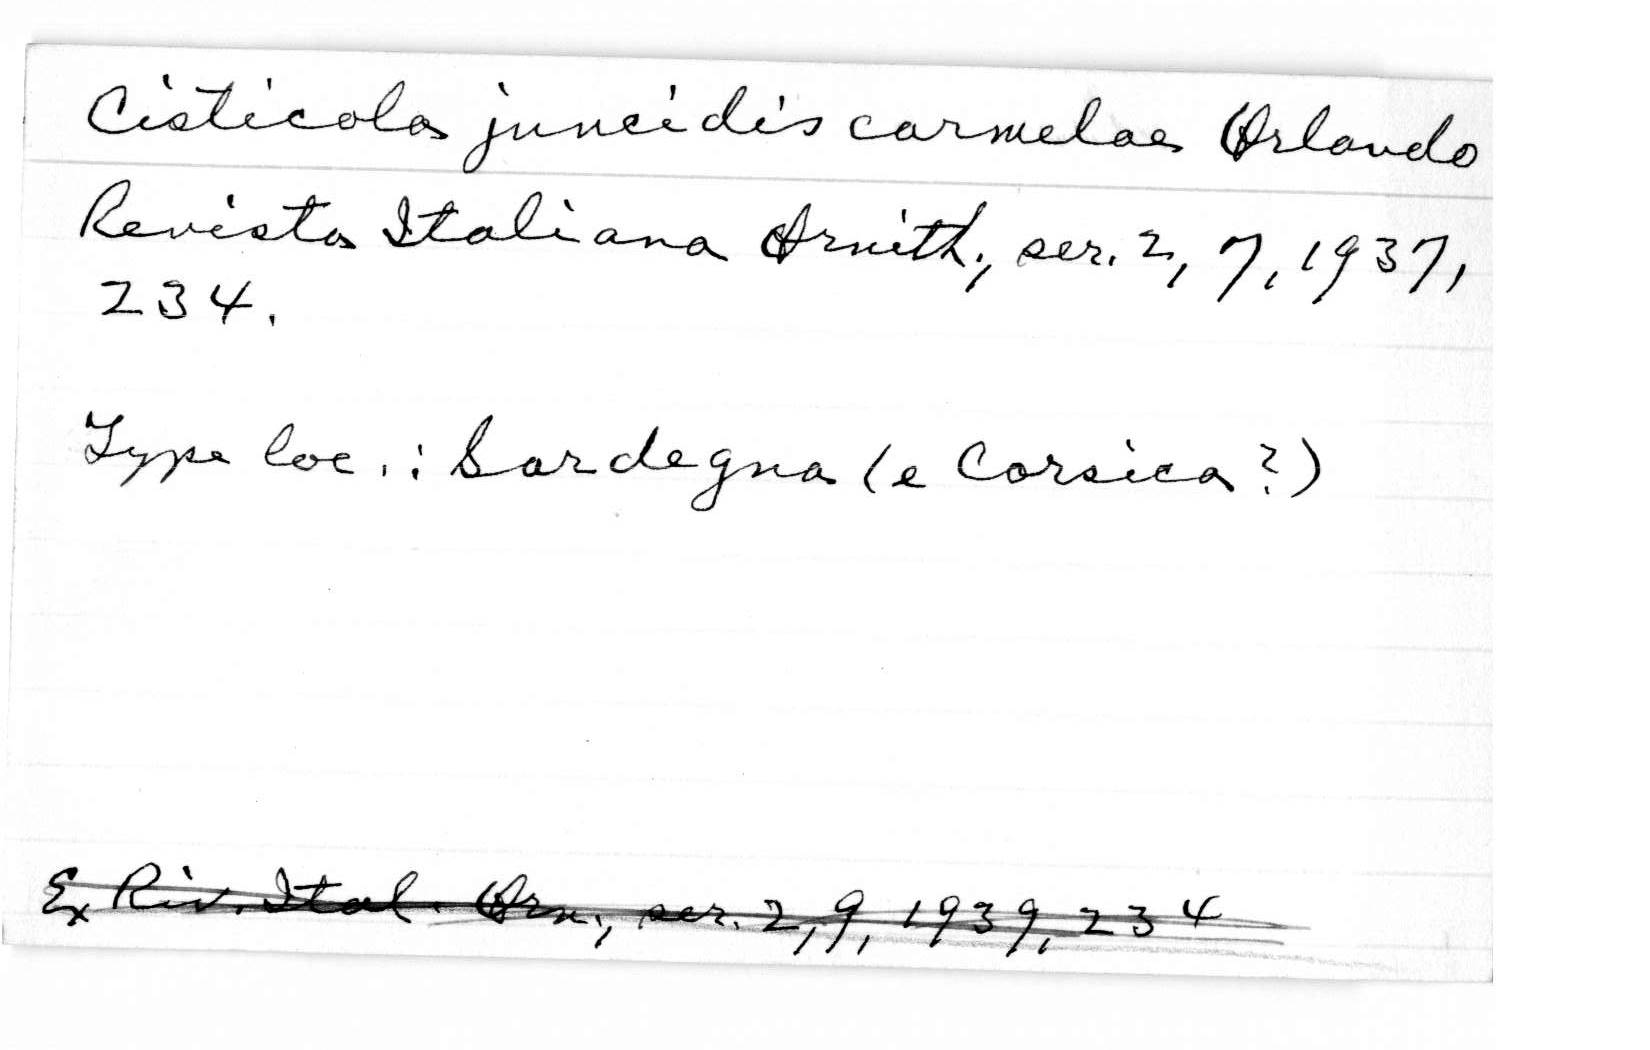 Cisticola juncidis carmelae Orlando
Revista Italiana Ornith., ser. 2, 7, 1937,
234.
Type loc.: Sardegna (e Corsica?)
Ex Riv. Ital. Orn., ser. 2, 9, 1939, 234